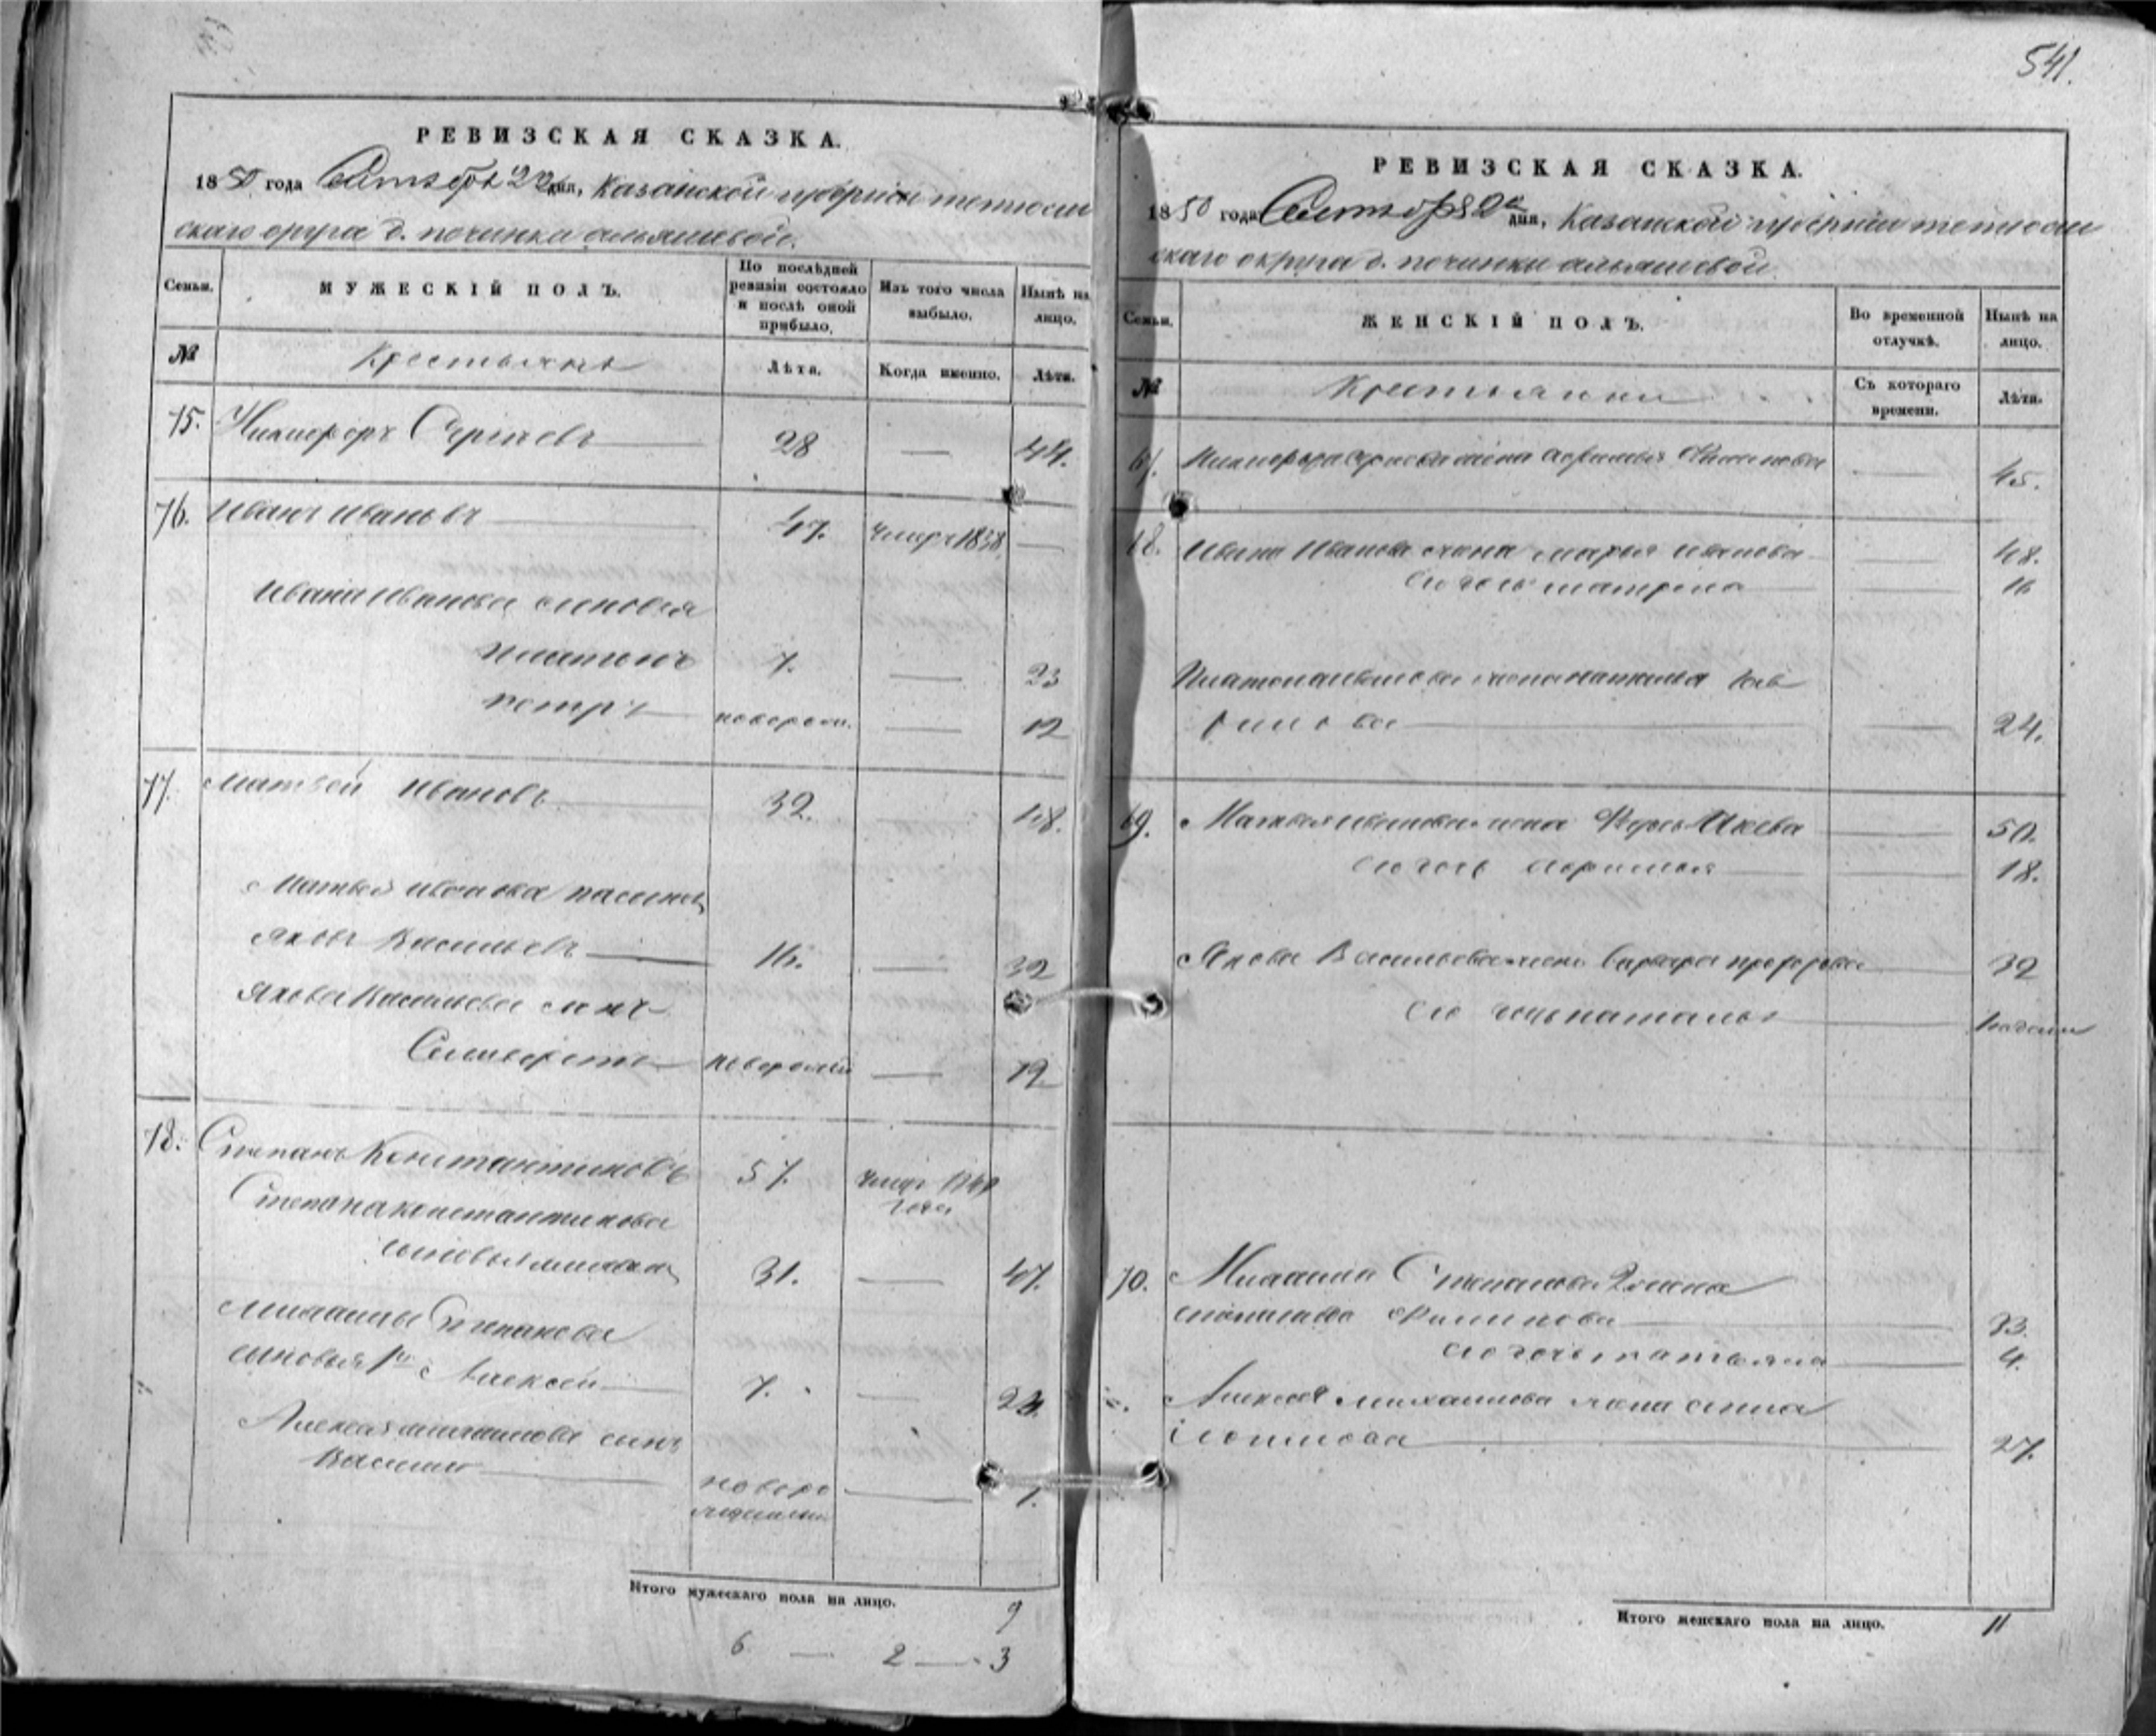 РЕВИЗСКАЯ СКАЗКА.
1850 года Сентября 22 дня, Казанской губернии тетюшск
скаго округа д. починки альяшевой.
Семьи. МУЖЕСКІЙ ПОЛЪ. По послѣдней ревизіи состояло и послѣ оной прибыло. Изъ того числа выбыло. Нынѣ на лицо.
№ Крестьянъ Лѣта. Когда именно. Лѣта.
75. Никифоръ Сергѣевъ 28 — 44.
76. Иванъ Ивановъ 47. умеръ 1838 —
Ивана Иванова сыновья
Платонъ 7. — 23
Петръ новорож. — 12
77. Матвей Ивановъ 32. — 48.
Матвея Иванова пасынокъ
Яковъ Васильевъ 16. — 32
Якова Васильева сынъ
Селиверстъ новорожден — 12
78. Степанъ Константиновъ 57. умеръ
года
Степана Константинова
сыновья 31. — 47.
Степанова
сыновья 1й Алексей 7. —
Алексея Михайлова сынъ
Василий новоро
жденный — 1.
Итого мужескаго пола на лицо. 9
6 — 2 — 3
541.
РЕВИЗСКАЯ СКАЗКА.
1850 года Сентября дня, Казанской губерніи тетюшск
скаго округа д. починки альяшевой.
Семьи. ЖЕНСКІЙ ПОЛЪ. Во временной отлучкѣ. Нынѣ на лицо.
№ Крестьянки Съ котораго времени. Лѣта.
67. Никифора Сергѣева жена — 45.
68. Ивана Иванова жена Марья Иванова — 48.
его дочь Матрена — 16
Платона Иванова жена Наталья
— 24.
69. Матвея Иванова жена — 50.
его дочь — 18.
Якова Васильева жена Варвара 32
его дочь Наталья
70. Михаила Степанова 2 жена
Филипова 33.
его дочь Татьяна 4.
Алексея Михайлова жена Анна
27.
Итого женскаго пола на лицо. 11